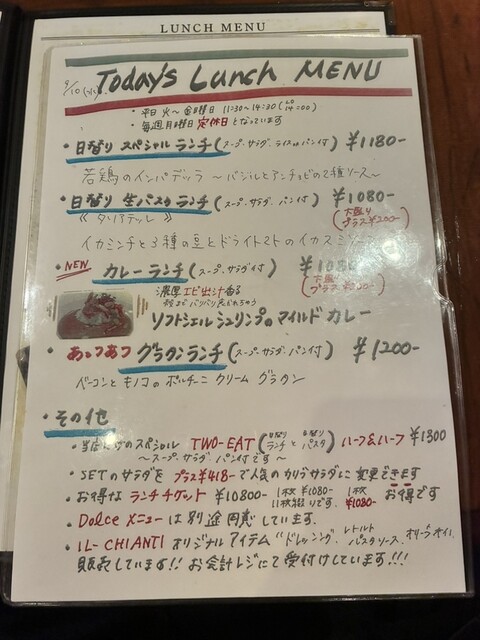 LUNCH MENU
Today's Lunch MENU
9/10(火)
・平日 火〜金曜日 11:30〜14:30(LO 14:00)
・毎週月曜日 定休日 となっています
・日替り スペシャル ランチ(スープ、サラダ、ライスorパン付) ¥1180-
若鶏のインパデッラ 〜バジルとアンチョビの2種ソース〜
・日替り 生パスタ ランチ(スープ、サラダ、パン付) ¥1080-
《タリアテッレ》 (大盛り プラス¥200-)
イカミンチと3種の豆とドライトマトのイカスミ
・NEW カレーランチ(スープ、サラダ付)
濃厚エビ出汁香る
ソフトシェルシュリンプのマイルド カレー
・あつつあつ グラタンランチ(スープ、サラダ、パン付) ¥1200-
ベーコンとキノコのポルチーニ クリーム グラタン
・その他
・当店だけのスペシャル TWO-EAT(日替りランチと日替りパスタ)ハーフ&ハーフ ¥1300
〜スープ、サラダ、パン付です〜
・SETのサラダを プラス¥418-で人気のカリブサラダに変更できます
・お得な ランチチケット ¥10800- 1枚 ¥1080- 11枚綴りです。 1枚 ¥1080- お得です
・Dolce メニューは別途用意しています。
・IL-CHIANTI オリジナルアイテム "ドレッシング、レトルトパスタソース、オリーブオイル
販売しています!! お会計レジにて受付けしています!!!